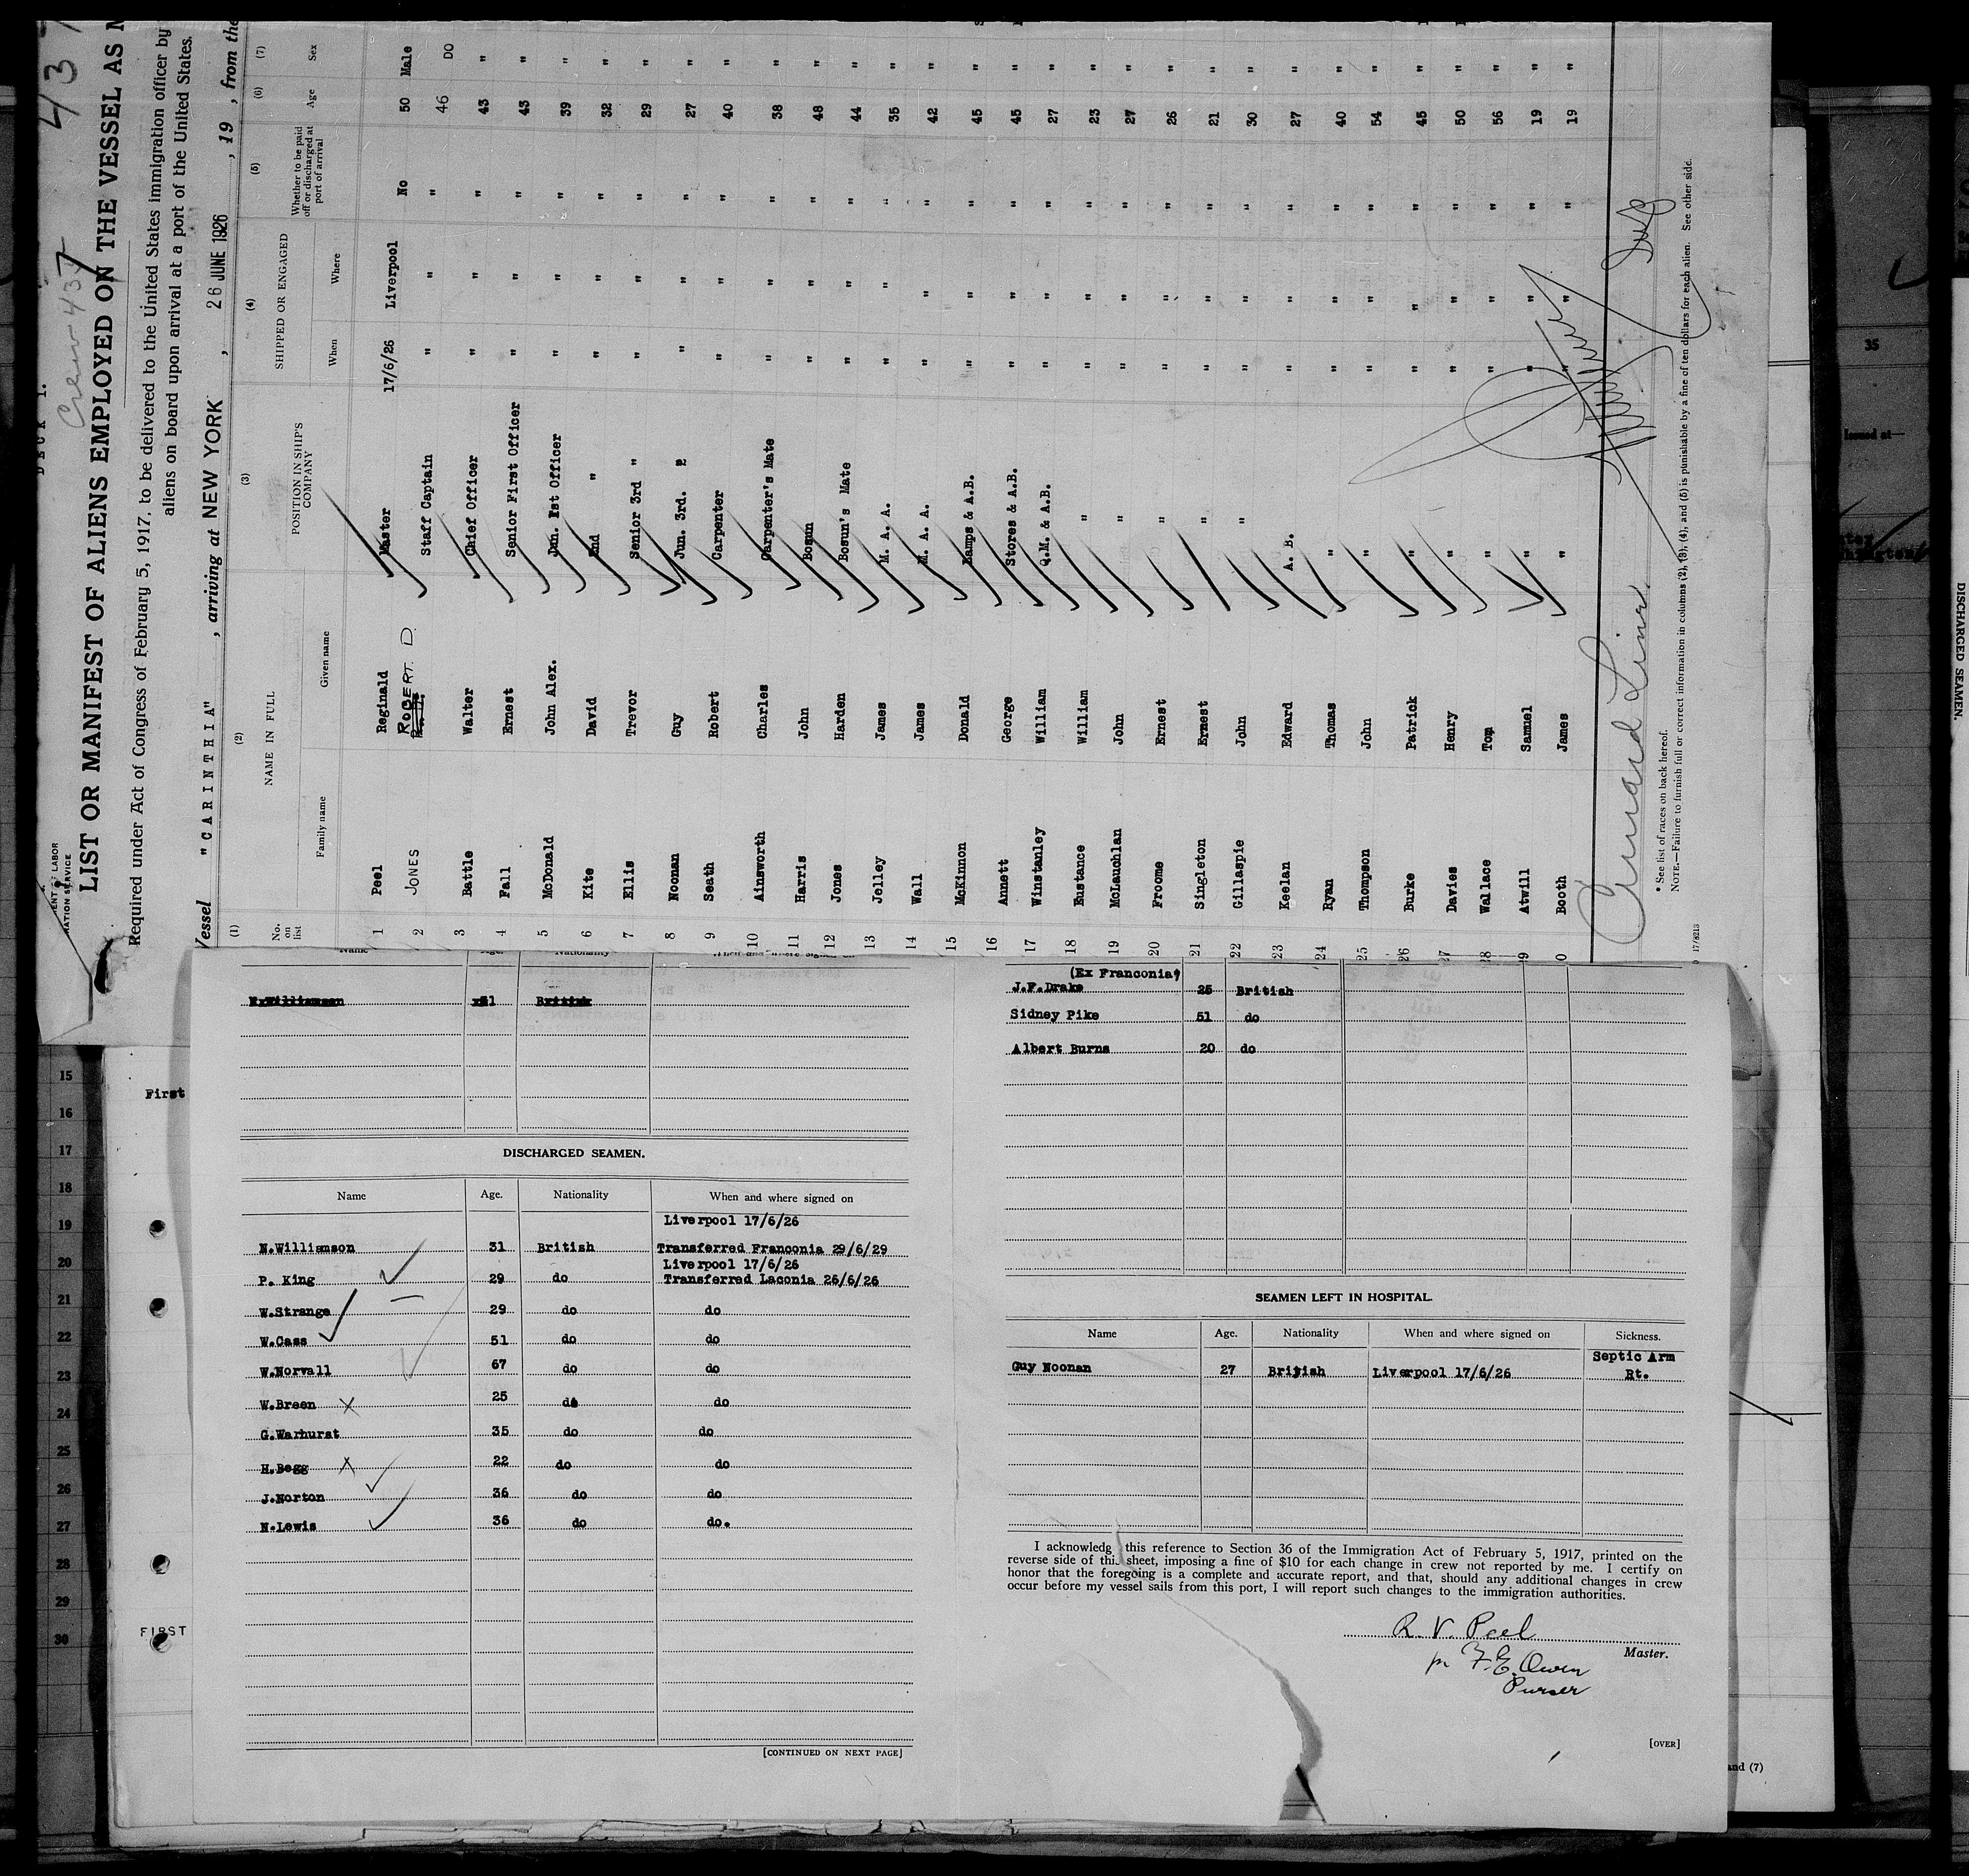 DECK 1.
437
Crew 437
ENT OF LABOR
RATION SERVICE
LIST OR MANIFEST OF ALIENS EMPLOYED ON THE VESSEL AS
Required under Act of Congress of February 5, 1917, to be delivered to the United States immigration officer by
aliens on board upon arrival at a port of the United States.
Vessel "CARINTHIA" , arriving at NEW YORK , 26 JUNE 1926 , 19 , from the
(1) (2) (3) (4) (5) (6) (7)
No. on list NAME IN FULL POSITION IN SHIP'S COMPANY SHIPPED OR ENGAGED Whether to be paid off or discharged at port of arrival Age Sex
Family name Given name When Where
1 Peel Reginald Master 17/6/26 Liverpool No 50 Male
2 JONES ROBERT. D. Staff Captain " " " 46 DO
3 Battle Walter Chief Officer " " " 43 "
4 Fall Ernest Senior First Officer " " " 43 "
5 McDonald John Alex. Jun. 1st Officer " " " 39 "
6 Kite David 2nd " " " " 32 "
7 Ellis Trevor Senior 3rd " " " " 29 "
8 Noonan Guy Jun. 3rd. " " " 27 "
9 Seath Robert Carpenter " " " 40 "
10 Ainsworth Charles Carpenter's Mate " " " 38 "
11 Harris John Bosun " " " 48 "
12 Jones Harden Bosun's Mate " " " 44 "
13 Jelley James M. A. A. " " " 35 "
14 Wall James M. A. A. " " " 42 "
15 McKinnon Donald Lamps & A.B. " " " 45 "
16 Annett George Stores & A.B. " " " 45 "
17 Winstanley William Q.M. & A.B. " " " 27 "
18 Eustance William " " " " 23 "
19 McLauchlan John " " " " 27 "
20 Froome Ernest " " " " 26 "
21 Singleton Ernest " " " " 21 "
22 Gillaspie John " " " " 30 "
23 Keelan Edward A. B. " " " 27 "
24 Ryan Thomas " " " " 40 "
25 Thompson John " " " " 54 "
26 Burke Patrick " " " " 45 "
27 Davies Henry " " " " 50 "
28 Wallace Tom " " " " 56 "
9 Atwill Samuel " " " " 19 "
0 Booth James " " " " 19 "
Cunard Line.
* See list of races on back hereof.
NOTE.—Failure to furnish full or correct information in columns (2), (3), (4), and (5) is punishable by a fine of ten dollars for each alien. See other side.
17/8213
Name Age. Nationality
N.Williamson x31 British
DISCHARGED SEAMEN.
Name Age. Nationality When and where signed on
Liverpool 17/6/26
N.Williamson 31 British Transferred Franconia 29/6/29
Liverpool 17/6/26
P. King 29 do Transferred Laconia 26/6/26
W.Strange 29 do do
W.Cass 51 do do
W.Norvall 67 do do
W.Breen X 25 do do
G.Warhurst 35 do do
H.Begg X 22 do do
J.Norton 36 do do
N.Lewis 36 do do.
[CONTINUED ON NEXT PAGE]
(Ex Franconia)
J.F.Drake 25 British
Sidney Pike 51 do
Albert Burns 20 do
SEAMEN LEFT IN HOSPITAL.
Name Age. Nationality When and where signed on Sickness.
Guy Noonan 27 British Liverpool 17/6/26 Septic Arm
Rt.
I acknowledg this reference to Section 36 of the Immigration Act of February 5, 1917, printed on the
reverse side of this sheet, imposing a fine of $10 for each change in crew not reported by me. I certify on
honor that the foregoing is a complete and accurate report, and that, should any additional changes in crew
occur before my vessel sails from this port, I will report such changes to the immigration authorities.
R. V. Peel
Master.
pr F.E. Owen
Purser
[OVER]
and (7)
15
First
16
17
18
19
20
21
22
23
24
25
26
27
28
29
30
FIRST
35
Issued at—
DISCHARGED SEAMEN.